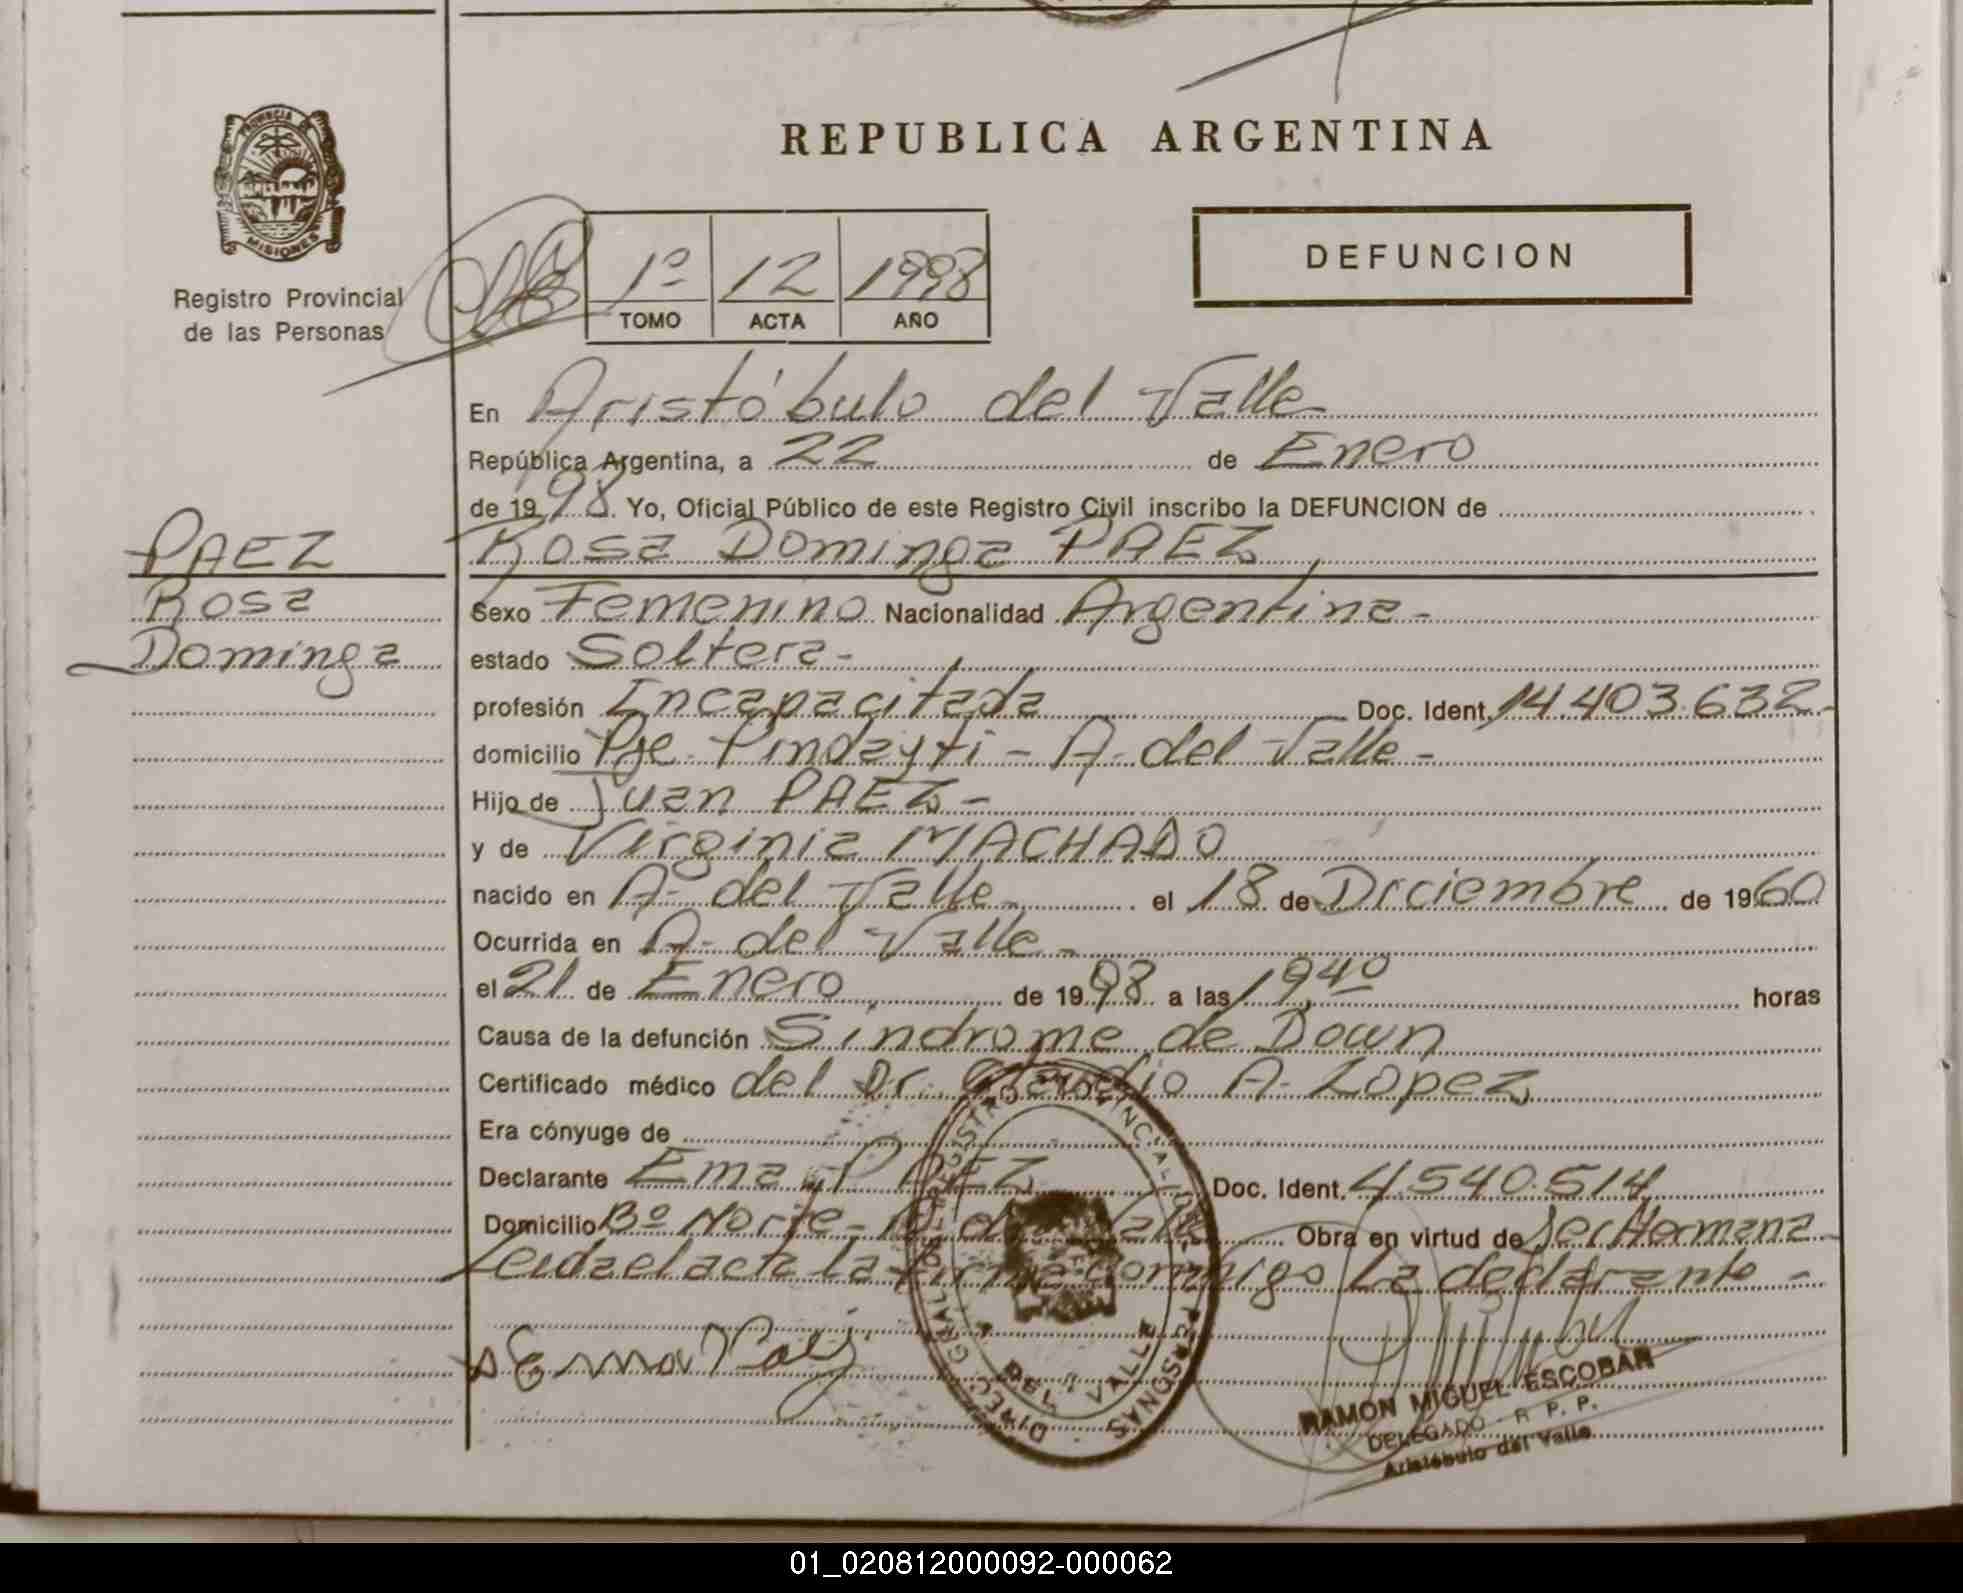 REPUBLICA ARGENTINA
PROVINCIA DE
MISIONES
Registro Provincial
de las Personas
1º 12 1998
TOMO ACTA AÑO
DEFUNCION
En Aristóbulo del Valle
República Argentina, a 22 de Enero
de 1998. Yo, Oficial Público de este Registro Civil inscribo la DEFUNCION de
PAEZ
Rosa
Dominga
Rosa Dominga PAEZ
Sexo Femenino Nacionalidad Argentina-
estado Soltera-
profesión Incapacitada Doc. Ident. 14.403.632-
domicilio Pje. Pindayti - A. del Valle-
Hijo de Juan PAEZ-
y de Virginia MACHADO
nacido en A- del Valle- el 18 de Diciembre de 1960
Ocurrida en A- del Valle-
el 21 de Enero de 1998 a las 19,40 horas
Causa de la defunción Sindrome de Down
Certificado médico del Dr. A- Lopez
Era cónyuge de
Declarante Ema PAEZ Doc. Ident. 4.540.514
Domicilio Bº Norte- A. del Valle Obra en virtud de Ser Hermana-
Leida el acta la firma conmigo La declarante-
Ema Paez
DEL VALLE
RAMON MIGUEL ESCOBAR
DELEGADO - R. P. P.
Aristóbulo del Valle
01_020812000092-000062